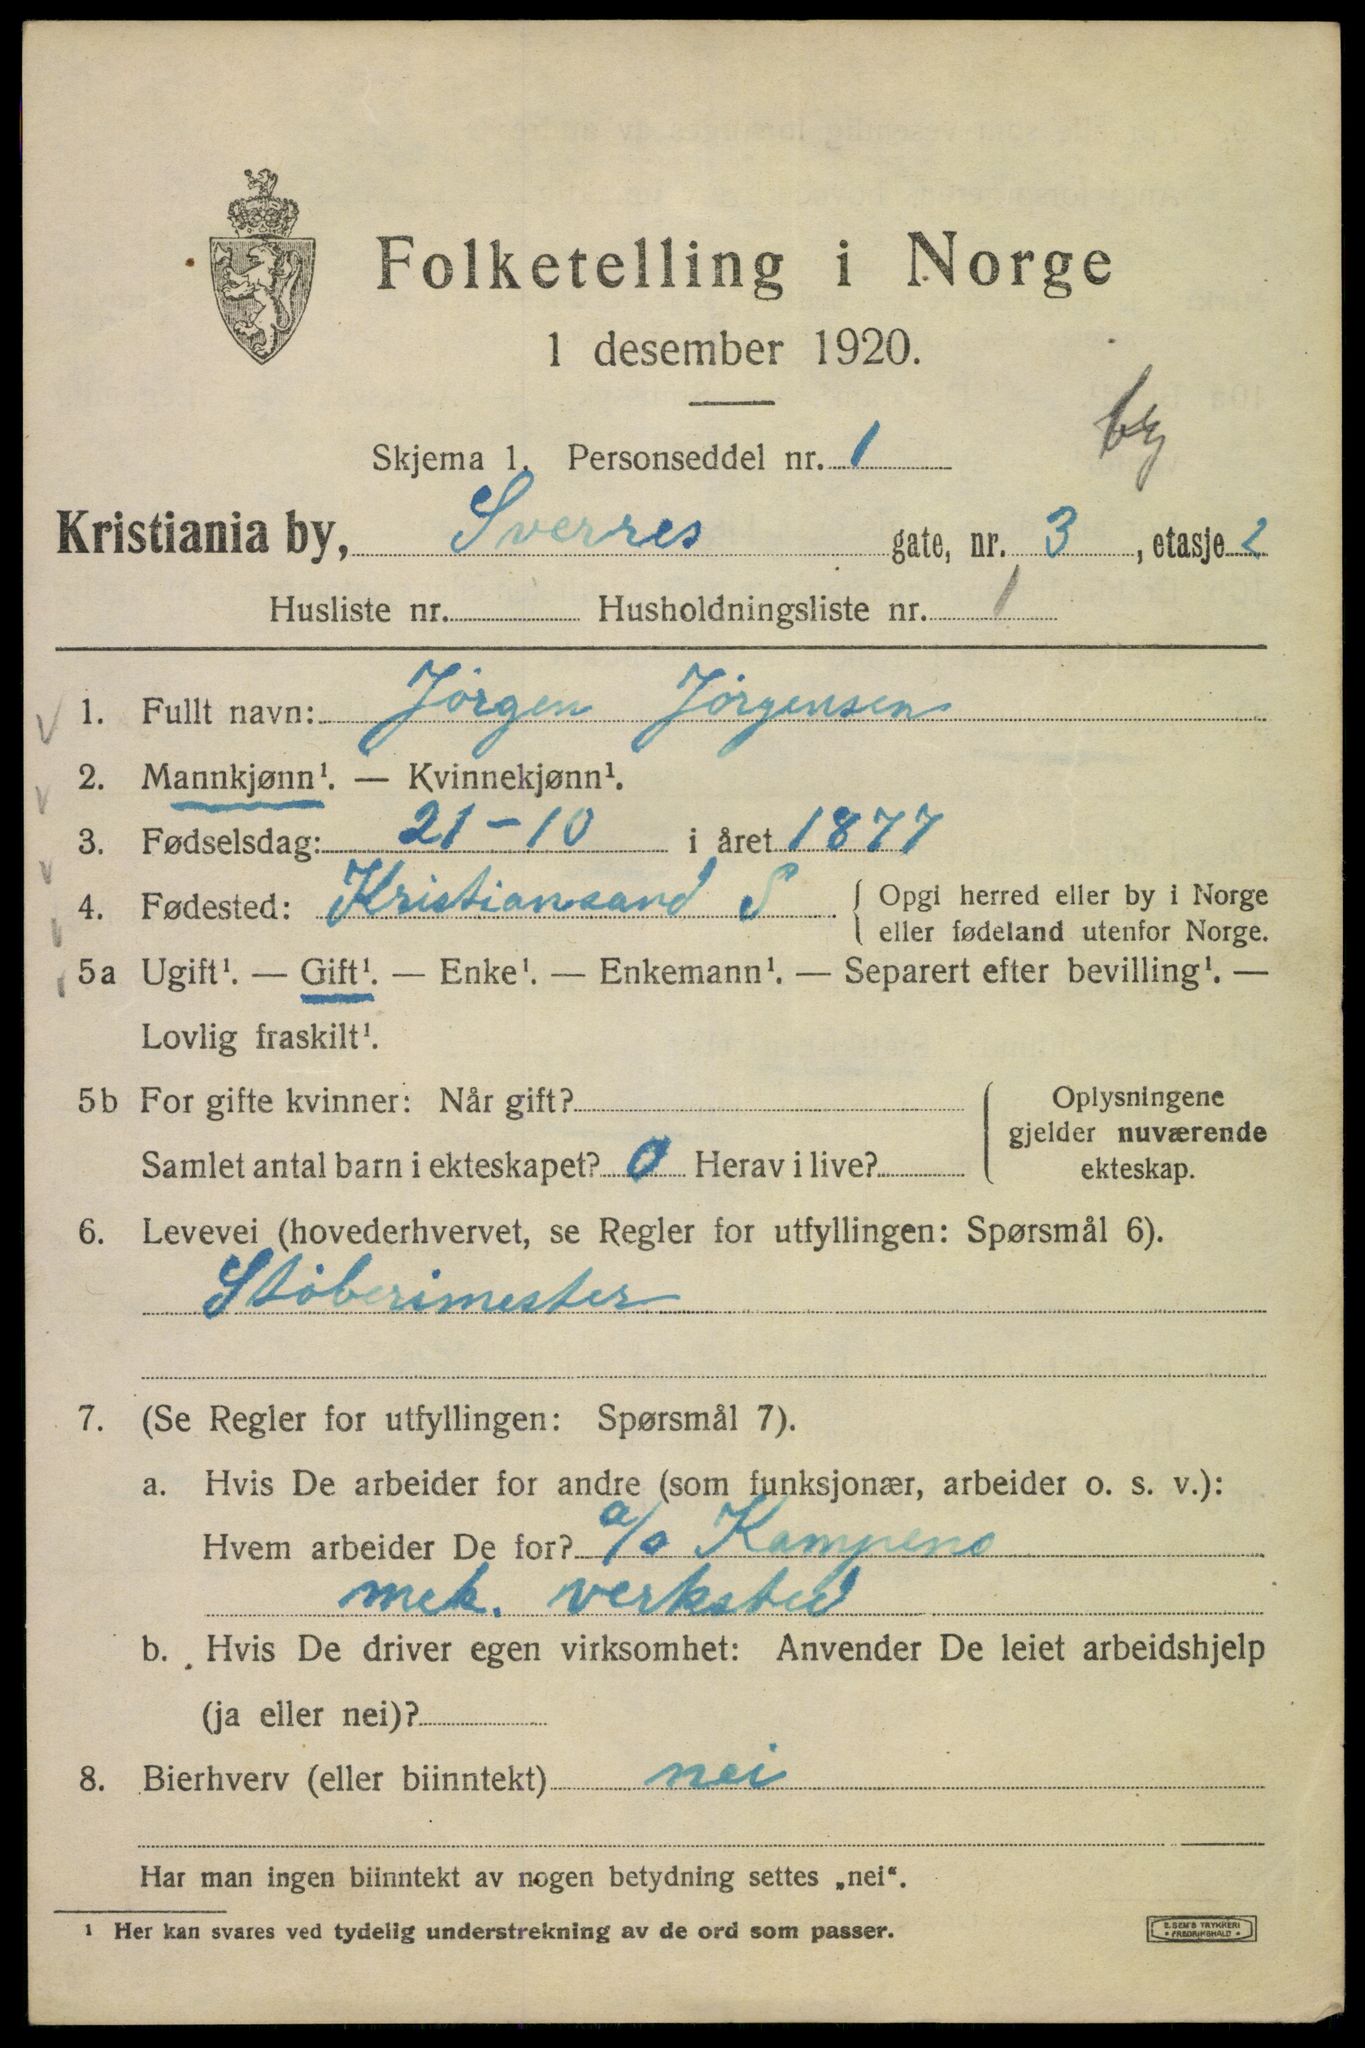 Folketelling i Norge
1 desember 1920.
by
Skjema 1. Personseddel nr. 1
Kristiania by, Sverres gate, nr. 3, etasje 2
Husliste nr. Husholdningsliste nr. 1
1. Fullt navn: Jörgen Jörgensen
2. Mannkjønn¹. — Kvinnekjønn¹.
3. Fødselsdag: 21-10 i året 1877
4. Fødested: Kristiansand S { Opgi herred eller by i Norge
eller fødeland utenfor Norge.
5a Ugift¹. — Gift¹. — Enke¹. — Enkemann¹. — Separert efter bevilling¹. —
Lovlig fraskilt¹.
5b For gifte kvinner: Når gift? Oplysningene
gjelder nuværende
Samlet antal barn i ekteskapet? 0 Herav i live? ekteskap.
6. Levevei (hovederhvervet, se Regler for utfyllingen: Spørsmål 6).
Stöberimester
7. (Se Regler for utfyllingen: Spørsmål 7).
a. Hvis De arbeider for andre (som funksjonær, arbeider o. s. v.):
Hvem arbeider De for? a/s Kampens
mek. verksted
b. Hvis De driver egen virksomhet: Anvender De leiet arbeidshjelp
(ja eller nei)?
8. Bierhverv (eller biinntekt) nei
Har man ingen biinntekt av nogen betydning settes „nei“.
¹ Her kan svares ved tydelig understrekning av de ord som passer.
E. SEM'S TRYKKERI
* FREDRIKSHALD *